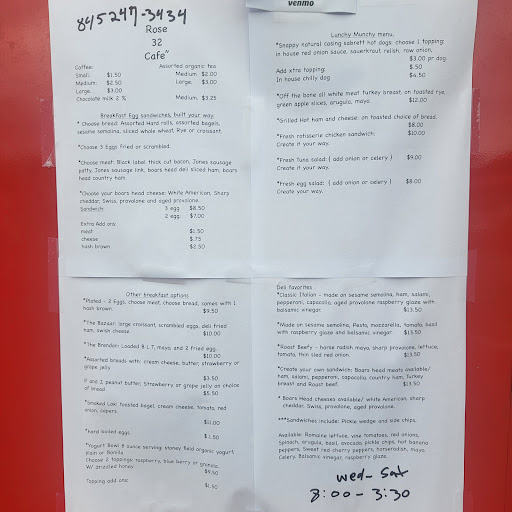 venmo
845 247-3434
Rose
32
Cafe"
Coffee: Assorted organic tea
Small: $1.50 Medium $2.00
Medium: $2.50 Large: $3.00
Large $3.00
Chocolate milk 2 % Medium, $3.25
Breakfast Egg sandwiches, built your way.
* Choose bread: Assorted Hard rolls, assorted bagels,
sesame semolina, sliced whole wheat, Rye or croissant.
*Choose 3 Eggs: fried or scrambled.
*Choose meat: Black label thick cut bacon, Jones sausage
patty, Jones sausage link, boars head deli sliced ham, boars
head country ham
*Choose your boars head cheese: White American, Sharp
cheddar, Swiss, provolone and aged provolone.
Sandwich: 3 egg $8.50
2 egg: $7.00
Extra Add ons:
meat $1.50
cheese $.75
hash brown $2.50
Lunchy Munchy menu.
*Snappy natural casing sabrett hot dogs: choose 1 topping:
in house red onion sauce, sauerkraut, relish, raw onion,
$3.00 pr dog.
Add xtra topping: $.50
In house chilly dog $4.50
*Off the bone all white meat turkey breast, on toasted rye,
green apple slices, arugula, mayo. $12.00
*Grilled Hot ham and cheese: on toasted choice of bread.
$8.00
*Fresh rotisserie chicken sandwich: $10.00
Create it your way.
*Fresh Tuna salad: ( add onion or celery ) $9.00
Create it your way.
*Fresh egg salad: ( add onion or celery ) $8.00
Create your way.
Other breakfast options
*Plated - 2 Eggs, choose meat, choose bread, comes with 1
hash brown. $9.50
*The Bazaar: large croissant, scrambled eggs, deli fried
ham, swish cheese $10.00
*The Brenden: Loaded B L T, mayo, and 2 fried egg.
$10.00
*Assorted breads with: cream cheese, butter, strawberry or
grape jelly
$3.50
P and J, peanut butter, Strawberry or grape jelly on choice
of bread. $5.50
*Smoked Loki toasted bagel, cream cheese, tomato, red
onion, capers.
$11.00
*hard boiled eggs.
$1.50
*Yogurt Bowl 8 ounce serving: stoney field organic yogurt
Plain or Vanilla
Choose 2 toppings: raspberry, blue berry or granola.
W/ drizzled honey $9.50
Topping add ons:
$1.50
Deli favorites
*Classic Italian - made on sesame semolina, ham, salami,
pepperoni, capacolla, aged provolone raspberry glaze with
balsamic vinegar. $13.50
*Made on sesame semolina, Pesto, mozzarella, tomato, basil
with raspberry glaze and balsamic vinegar $13.50
*Roast Beefy - horse radish mayo, sharp provolone, lettuce,
tomato, thin sled red onion. $13.50
*Create your own sandwich: Boars head meats available/
ham, salami, pepperoni, capacolla, country ham, Turkey
breast and Roast beef. $13.50
* Boars Head cheeses available/ white American, sharp
cheddar, Swiss, provolone, aged provolone.
***Sandwiches include: Pickle wedge and side chips.
Available: Romaine lettuce, vine tomatoes, red onions,
Spinach, arugula, basil, avocado, pickle chips, hot banana
peppers, Sweet red cherry peppers, horseradish, mayo.
Celery, Balsamic vinegar, raspberry glaze.
wed- Sat
8:00 - 3:30